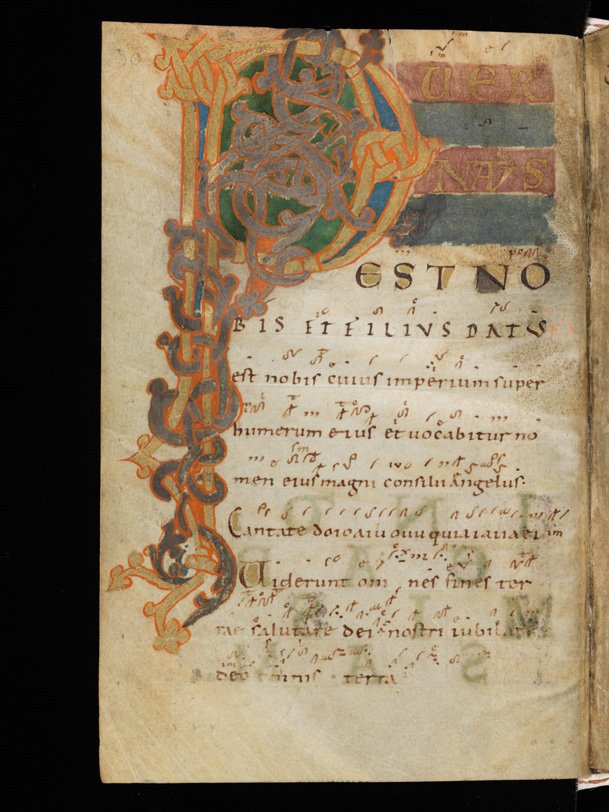 PUER
NATUS
EST NO
BIS ET FILIUS DATUS
est nobis cuius imperium super
humerum eius et uocabitur no
men eius magni consilii angelus.
Cantate dno
Uiderunt om nes fines ter
rae salutare dei nostri iubilate
deo omnis terra